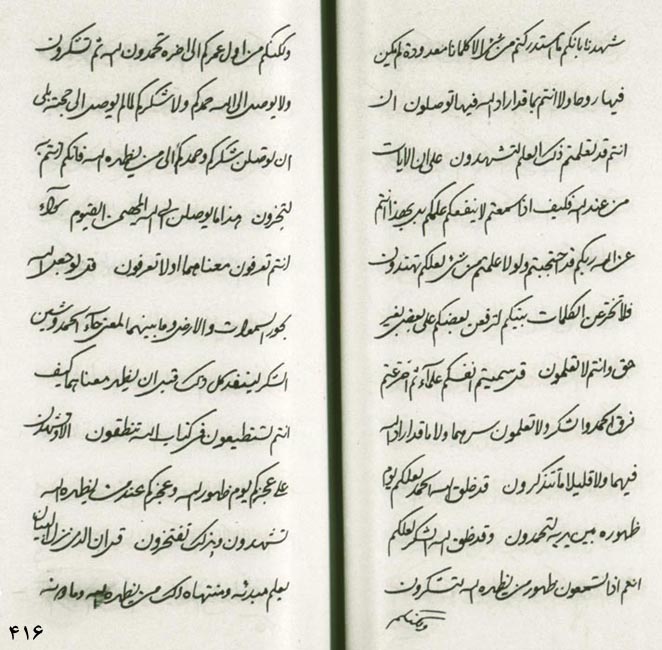 شهدنا بانكم ما استدركتم من شئ الا كلمانا معدودة لم يكن
فيها روحا ولا انتم بما قد اراد الله فيها توصلون ان
انتم قد تعلمتم ذلك العلم لتشهدون على ان الايات
من عند الله فكيف اذا سمعتم لا ينفعكم علمكم بل بهذا انتم
عن الله ربكم قد احتجبتم ولولا علمتم من شئ لعلكم تهتدون
فلا تخترعن الكلمات بينكم لترفعن بعضكم على بعض بغير
حق وانتم لا تعلمون قد سميتم انفسكم علماء ثم اخترعتم
فرق الحمد والشكر ولا تعلمون سرهما ولا ما قد اراد الله
فيهما ولا قليلا ما تتذكرون قد خلق الله الحمد لعلكم يوم
ظهوره بين يديه لتحمدون وقد خلق الله الشكر لعلكم
انتم اذا تسمعون ظهور من يظهره الله لتشكرون
ولكنكم
ولكنكم من اول عمركم الى اخره تحمدون الله ثم تشكرون
ولا يوصل الى الله حمدكم ولا شكركم لما لم يوصل الى حجته بلى
ان توصلن شكركم وحمدكم الى من يظهره الله فانكم انتم به
لتجزون هذا ما يوصلن الى الله المهيمن القيوم سواء
انتم تعرفون معناهما او لا تعرفون قل لو جعل الله
بحور السموات والارض وما بينهما المعنى حاء الحمد وشين
الشكر لينفد كل ذلك قبل ان يظهر معناهما كيف
انتم تستطيعون فى كتاب الله تنطقون الا وتشهدن
على عجزكم يوم ظهور الله وعجزكم عند من يظهره الله
تشهدون وبذلك تفتخرون قل ان الذى نزل البيان
يعلم مبدئه ومنتهاه ذلك من يظهره الله وما دونه
۴۱۶